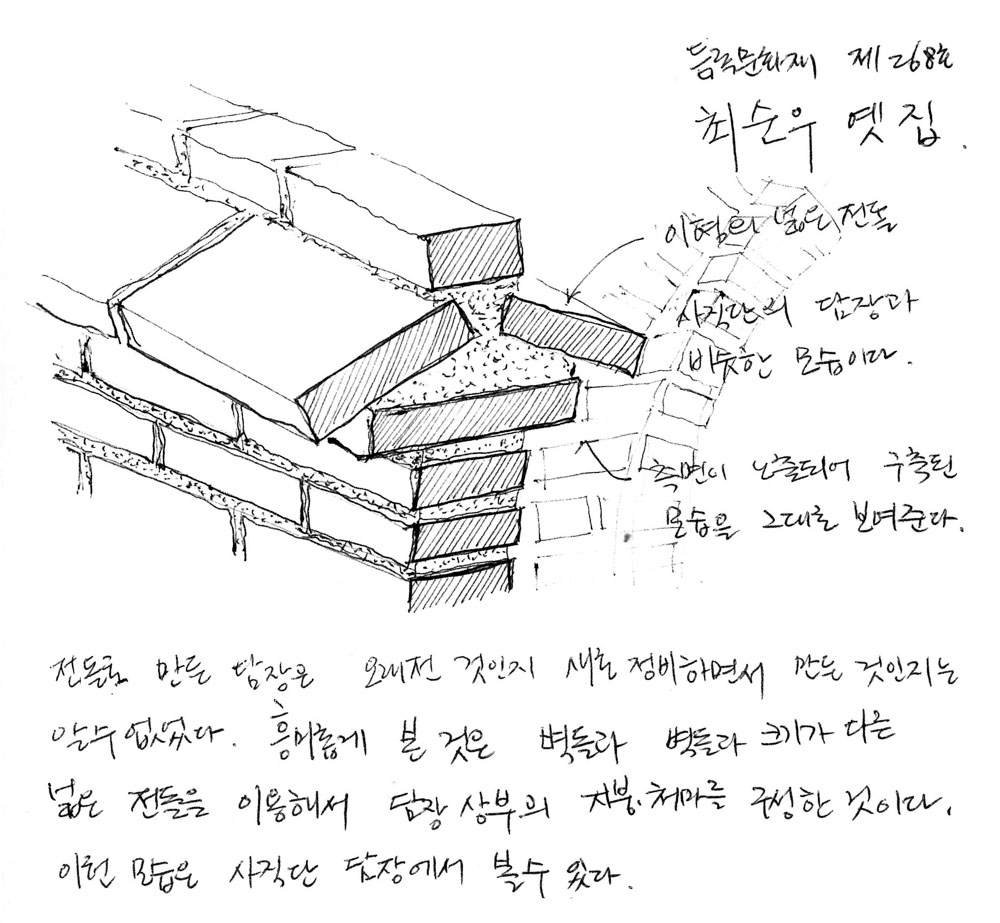 등록문화재 제268호
최순우 옛집.
이형의 넓은 전돌
사직단의 담장과
비슷한 모습이다.
측면이 노출되어 구축된
모습을 그대로 보여준다.
전돌로 만든 담장은 오래전 것인지 새로 정비하면서 만든 것인지는
알수 없었다. 흥미롭게 본 것은 벽돌과 벽돌과 크기가 다른
넓은 전돌을 이용해서 담장 상부의 지붕.처마를 구성한 것이다.
이런 모습은 사직단 담장에서 볼수 있다.